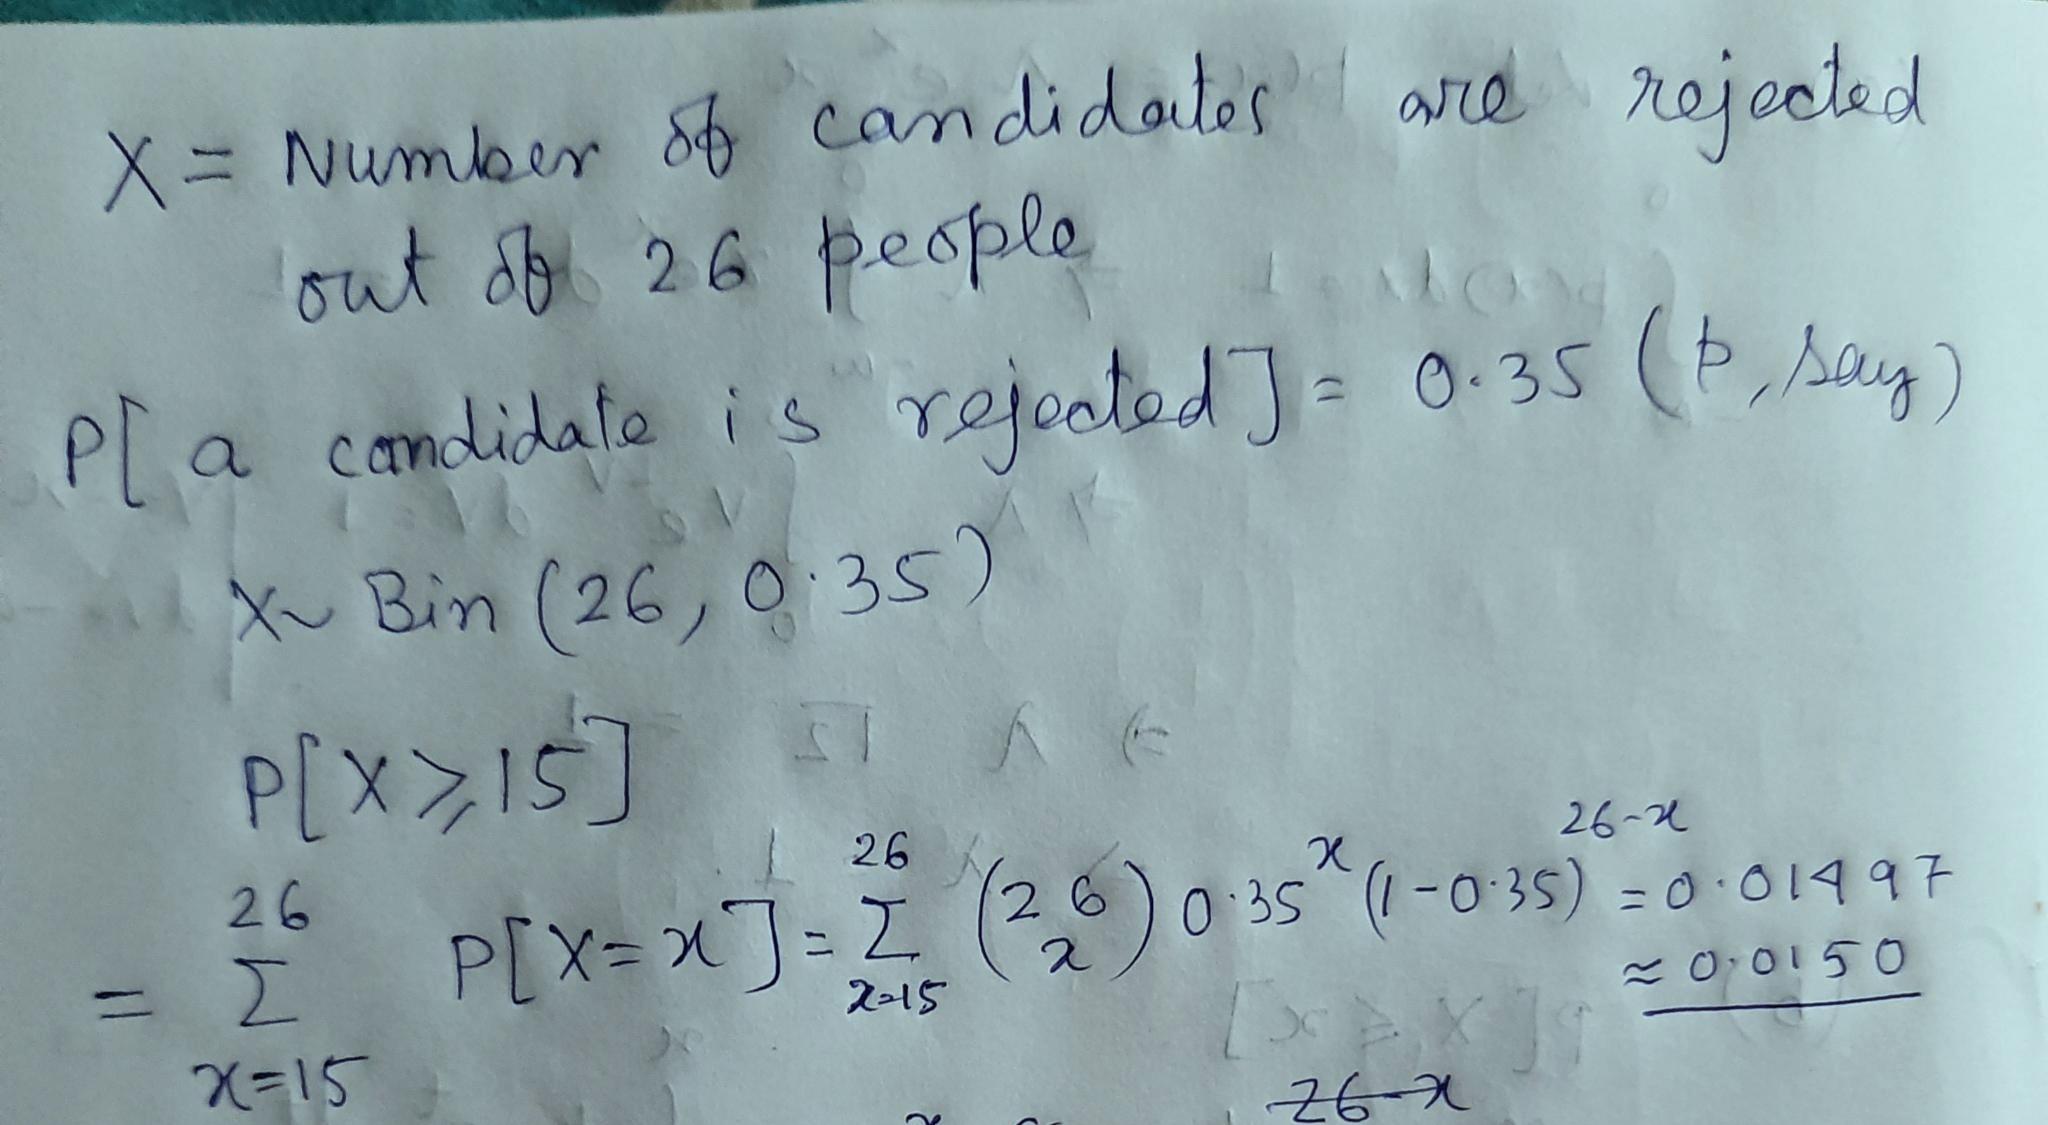 X = Number of candidates are rejected
out of 26 people
P[ a candidate is rejected ] = 0.35 (p, say)
X ~ Bin (26, 0.35)
P[X ≥ 15]
= Σ_{x=15}^{26} P[X = x] = Σ_{x=15}^{26} (26 x) 0.35^x (1-0.35)^{26-x} = 0.01497
≈ 0.0150
26-x